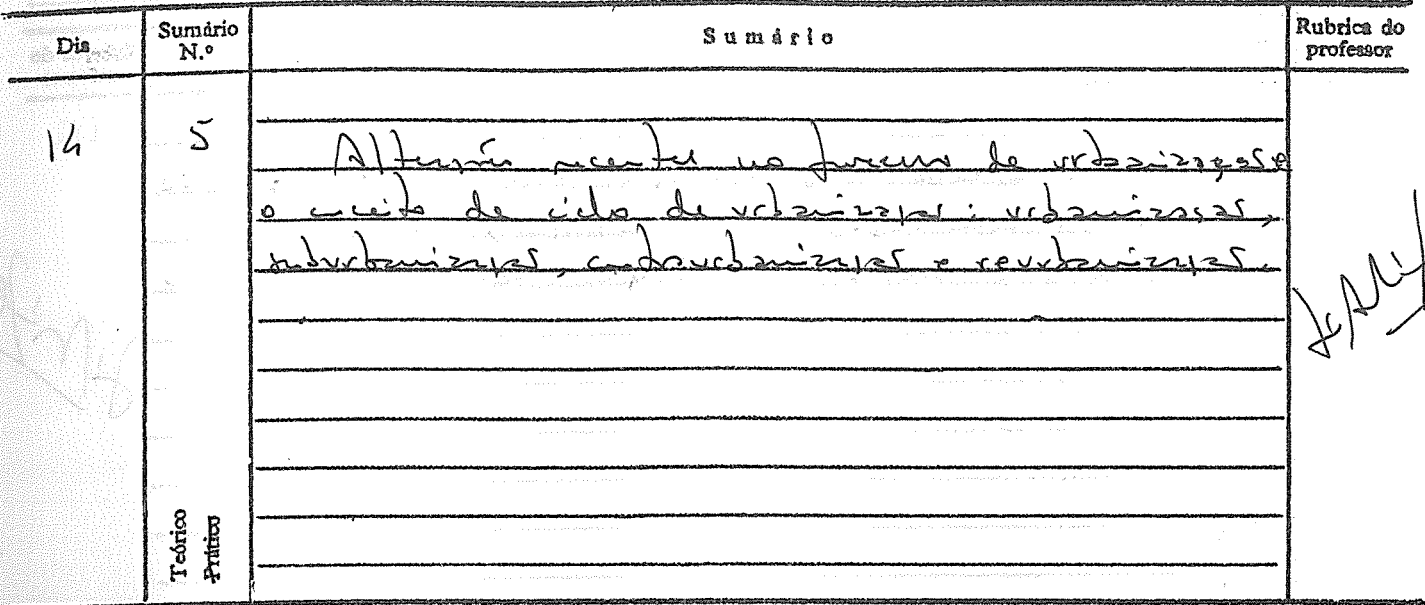 Dia
Sumário N.º
Sumário
Rubrica do professor
14
5
Alterações recentes no processo de urbanização e
o conceito de ciclo de urbanização: urbanização,
suburbanização, contraurbanização e reurbanização.
Teórico
Prático